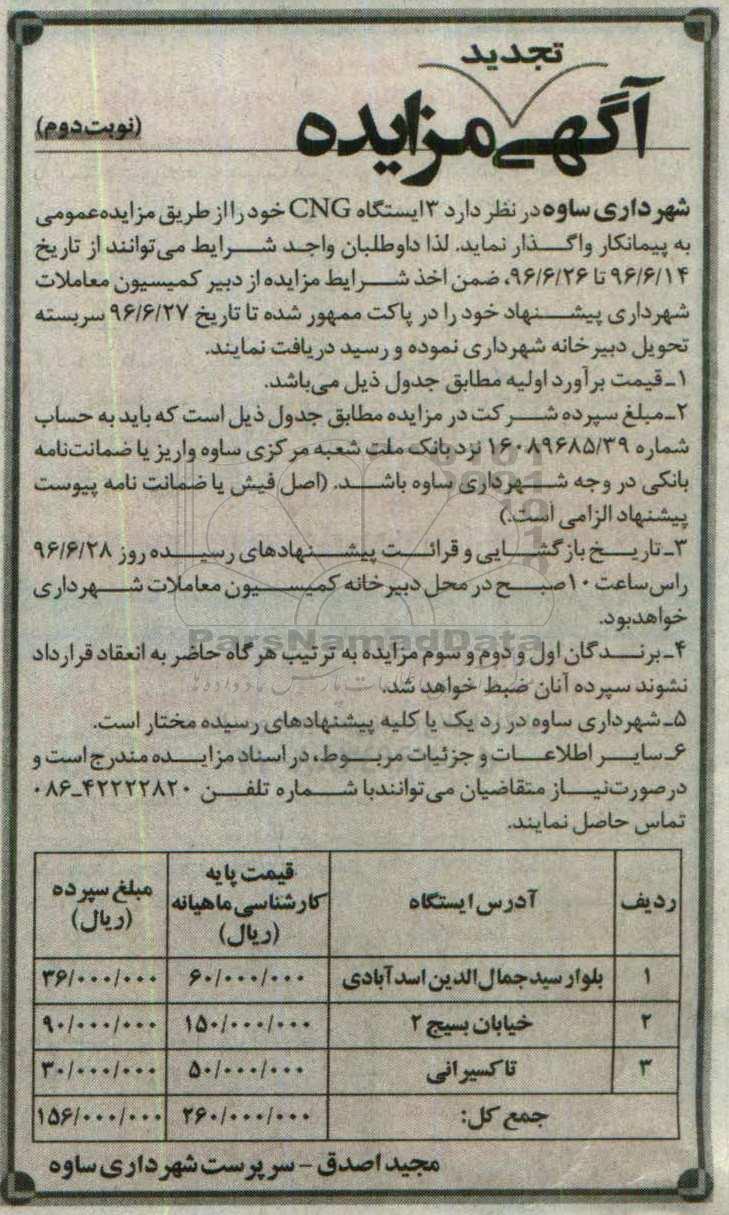 تجدید
آگهی مزایده
(نوبت دوم)
شهرداری ساوه در نظر دارد ۳ ایستگاه CNG خود را از طریق مزایده عمومی
به پیمانکار واگذار نماید. لذا داوطلبان واجد شرایط می‌توانند از تاریخ
۹۶/۶/۱۴ تا ۹۶/۶/۲۶، ضمن اخذ شرایط مزایده از دبیر کمیسیون معاملات
شهرداری پیشنهاد خود را در پاکت ممهور شده تا تاریخ ۹۶/۶/۲۷ سربسته
تحویل دبیرخانه شهرداری نموده و رسید دریافت نمایند.
۱ـ قیمت برآورد اولیه مطابق جدول ذیل می‌باشد.
۲ـ مبلغ سپرده شرکت در مزایده مطابق جدول ذیل است که باید به حساب
شماره ۱۶۰۸۹۶۸۵/۳۹ نزد بانک ملت شعبه مرکزی ساوه واریز یا ضمانت‌نامه
بانکی در وجه شهرداری ساوه باشد. (اصل فیش یا ضمانت نامه پیوست
پیشنهاد الزامی است.)
۳ـ تاریخ بازگشایی و قرائت پیشنهادهای رسیده روز ۹۶/۶/۲۸
راس ساعت ۱۰ صبح در محل دبیرخانه کمیسیون معاملات شهرداری
خواهدبود.
ParsNamadData
۴ـ برندگان اول و دوم و سوم مزایده به ترتیب هرگاه حاضر به انعقاد قرارداد
نشوند سپرده آنان ضبط خواهد شد.
۵ـ شهرداری ساوه در رد یک یا کلیه پیشنهادهای رسیده مختار است.
۶ـ سایر اطلاعات و جزئیات مربوط، در اسناد مزایده مندرج است و
درصورت‌نیاز متقاضیان می‌توانند با شماره تلفن ۴۲۲۲۲۸۲۰ـ۰۸۶
تماس حاصل نمایند.
ردیف آدرس ایستگاه قیمت پایه کارشناسی ماهیانه (ریال) مبلغ سپرده (ریال)
۱ بلوار سیدجمال‌الدین اسدآبادی ۶۰/۰۰۰/۰۰۰ ۳۶/۰۰۰/۰۰۰
۲ خیابان بسیج ۲ ۱۵۰/۰۰۰/۰۰۰ ۹۰/۰۰۰/۰۰۰
۳ تاکسیرانی ۵۰/۰۰۰/۰۰۰ ۳۰/۰۰۰/۰۰۰
جمع کل: ۲۶۰/۰۰۰/۰۰۰ ۱۵۶/۰۰۰/۰۰۰
مجید اصدق - سرپرست شهرداری ساوه